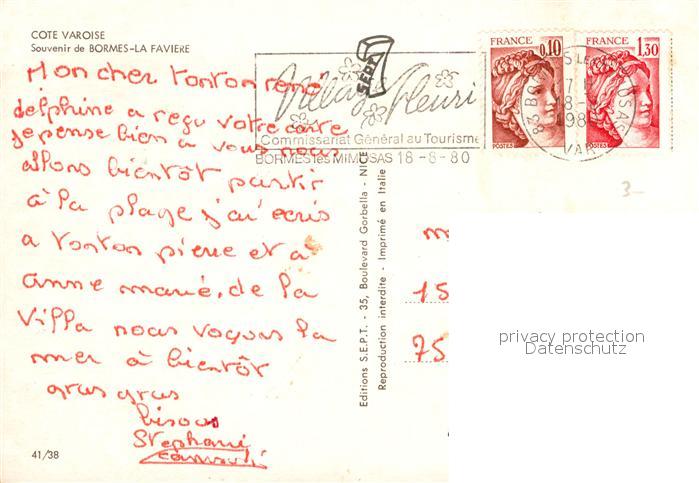 COTE VAROISE
Souvenir de BORMES-LA FAVIERE
Mon cher tonton rené
delphine a reçu votre carte
je pense bien a vous nous
allons bientôt partir
à la plage j'ai ecris
a tonton pierre et à
anne marie. de la
villa nous voyons la
mer à bientôt
gros gros
bisous
Stephanie
41/38
SEPT
Village Fleuri
Commissariat Général au Tourisme
BORMES les MIMOSAS 18-8-80
FRANCE
0,10
POSTES
FRANCE
1,30
POSTES
83 BORMES LES MIMOSAS
VAR
Editions S.E.P.T. - 35, Boulevard Gorbella - NICE
Reproduction interdite - Imprimé en Italie
m
15
75
3-
privacy protection
Datenschutz